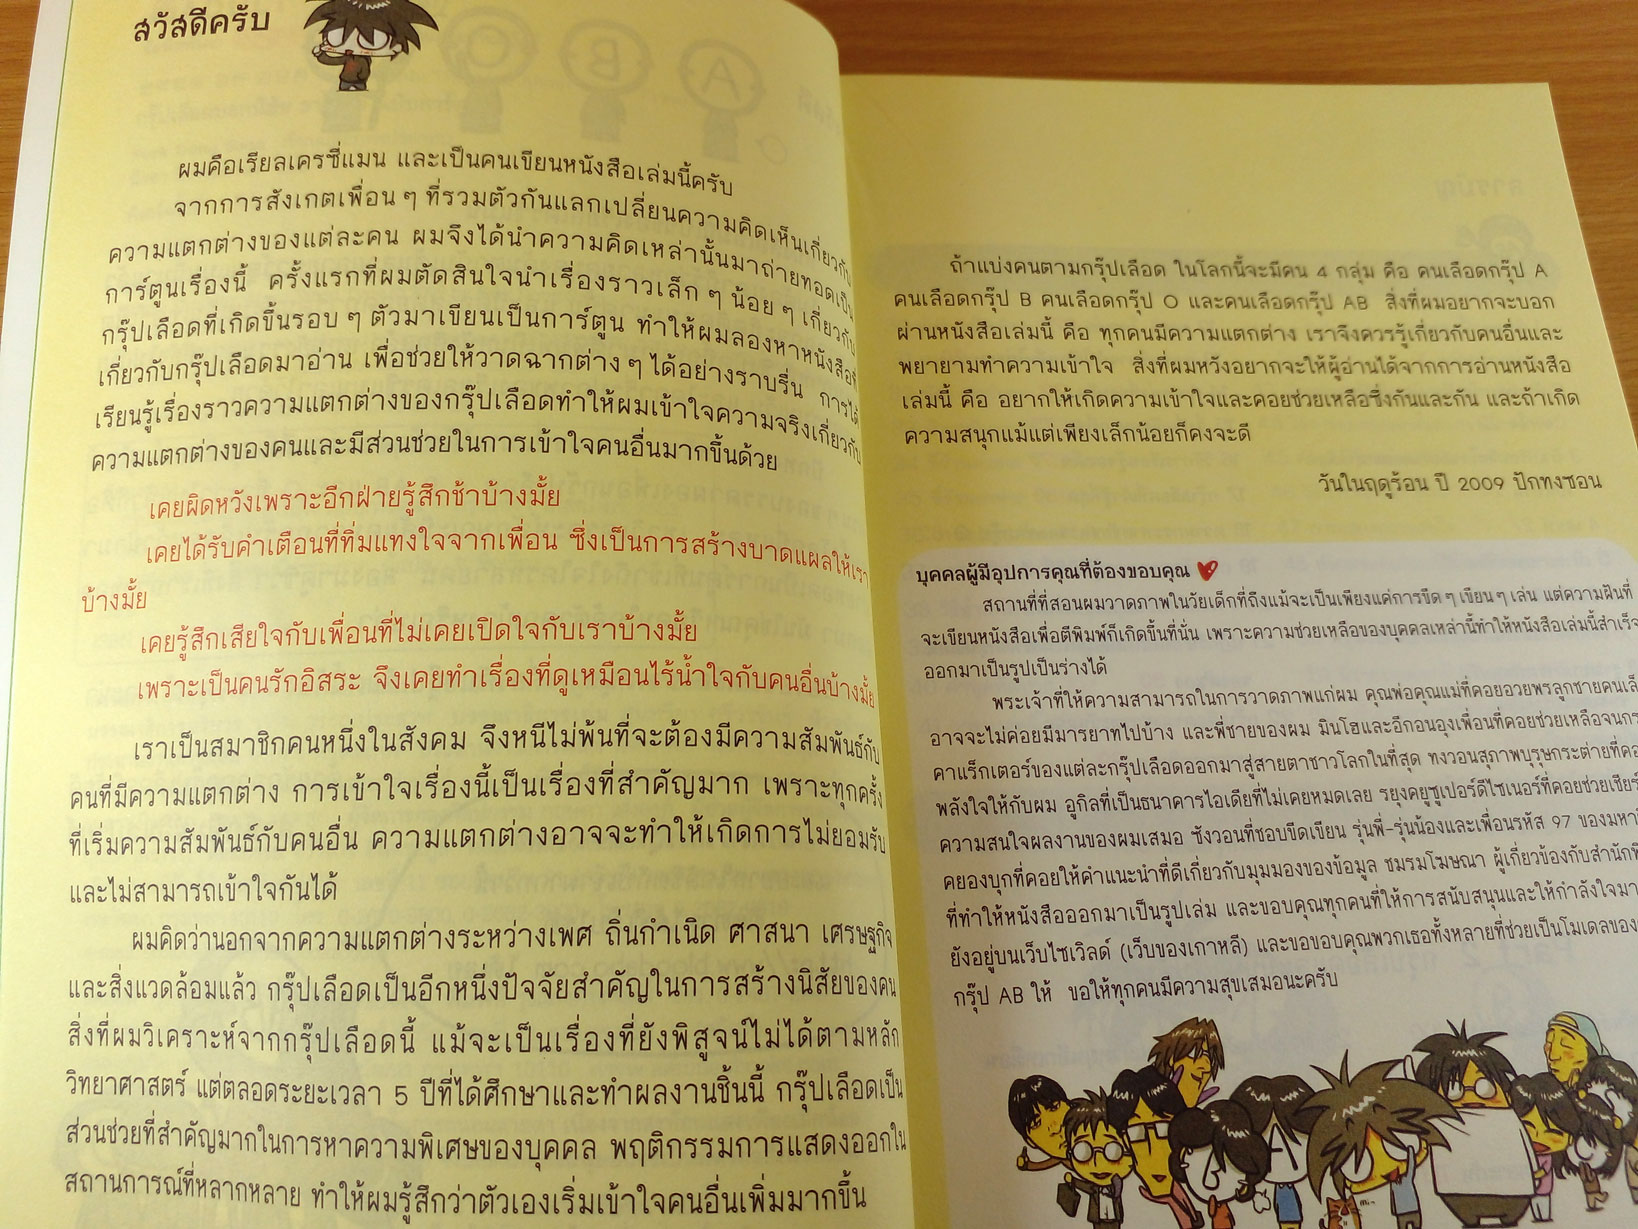 สวัสดีครับ
ผมคือเรียลเครซี่แมน และเป็นคนเขียนหนังสือเล่มนี้ครับ
จากการสังเกตเพื่อน ๆ ที่รวมตัวกันแลกเปลี่ยนความคิดเห็นเกี่ยวกับ
ความแตกต่างของแต่ละคน ผมจึงได้นำความคิดเหล่านั้นมาถ่ายทอดเป็น
การ์ตูนเรื่องนี้ ครั้งแรกที่ผมตัดสินใจนำเรื่องราวเล็ก ๆ น้อย ๆ เกี่ยวกับ
กรุ๊ปเลือดที่เกิดขึ้นรอบ ๆ ตัวมาเขียนเป็นการ์ตูน ทำให้ผมลองหาหนังสือ
เกี่ยวกับกรุ๊ปเลือดมาอ่าน เพื่อช่วยให้วาดฉากต่าง ๆ ได้อย่างราบรื่น การได้
เรียนรู้เรื่องราวความแตกต่างของกรุ๊ปเลือดทำให้ผมเข้าใจความจริงเกี่ยวกับ
ความแตกต่างของคนและมีส่วนช่วยในการเข้าใจคนอื่นมากขึ้นด้วย
เคยผิดหวังเพราะอีกฝ่ายรู้สึกช้าบ้างมั้ย
เคยได้รับคำเตือนที่ทิ่มแทงใจจากเพื่อน ซึ่งเป็นการสร้างบาดแผลให้เรา
บ้างมั้ย
เคยรู้สึกเสียใจกับเพื่อนที่ไม่เคยเปิดใจกับเราบ้างมั้ย
เพราะเป็นคนรักอิสระ จึงเคยทำเรื่องที่ดูเหมือนไร้น้ำใจกับคนอื่นบ้างมั้ย
เราเป็นสมาชิกคนหนึ่งในสังคม จึงหนีไม่พ้นที่จะต้องมีความสัมพันธ์กับ
คนที่มีความแตกต่าง การเข้าใจเรื่องนี้เป็นเรื่องที่สำคัญมาก เพราะทุกครั้ง
ที่เริ่มความสัมพันธ์กับคนอื่น ความแตกต่างอาจจะทำให้เกิดการไม่ยอมรับ
และไม่สามารถเข้าใจกันได้
ผมคิดว่านอกจากความแตกต่างระหว่างเพศ ถิ่นกำเนิด ศาสนา เศรษฐกิจ
และสิ่งแวดล้อมแล้ว กรุ๊ปเลือดเป็นอีกหนึ่งปัจจัยสำคัญในการสร้างนิสัยของคน
สิ่งที่ผมวิเคราะห์จากกรุ๊ปเลือดนี้ แม้จะเป็นเรื่องที่ยังพิสูจน์ไม่ได้ตามหลัก
วิทยาศาสตร์ แต่ตลอดระยะเวลา 5 ปีที่ได้ศึกษาและทำผลงานชิ้นนี้ กรุ๊ปเลือดเป็น
ส่วนช่วยที่สำคัญมากในการหาความพิเศษของบุคคล พฤติกรรมการแสดงออกใน
สถานการณ์ที่หลากหลาย ทำให้ผมรู้สึกว่าตัวเองเริ่มเข้าใจคนอื่นเพิ่มมากขึ้น
ถ้าแบ่งคนตามกรุ๊ปเลือด ในโลกนี้จะมีคน 4 กลุ่ม คือ คนเลือดกรุ๊ป A
คนเลือดกรุ๊ป B คนเลือดกรุ๊ป O และคนเลือดกรุ๊ป AB สิ่งที่ผมอยากจะบอก
ผ่านหนังสือเล่มนี้ คือ ทุกคนมีความแตกต่าง เราจึงควรรู้เกี่ยวกับคนอื่นและ
พยายามทำความเข้าใจ สิ่งที่ผมหวังอยากจะให้ผู้อ่านได้จากการอ่านหนังสือ
เล่มนี้ คือ อยากให้เกิดความเข้าใจและคอยช่วยเหลือซึ่งกันและกัน และถ้าเกิด
ความสนุกแม้แต่เพียงเล็กน้อยก็คงจะดี
วันในฤดูร้อน ปี 2009 ปักทงซอน
บุคคลผู้มีอุปการคุณที่ต้องขอบคุณ
สถานที่ที่สอนผมวาดภาพในวัยเด็กที่ถึงแม้จะเป็นเพียงแค่การขีด ๆ เขียน ๆ เล่น แต่ความฝันที่
จะเขียนหนังสือเพื่อตีพิมพ์ก็เกิดขึ้นที่นั่น เพราะความช่วยเหลือของบุคคลเหล่านี้ทำให้หนังสือเล่มนี้สำเร็จ
ออกมาเป็นรูปเป็นร่างได้
พระเจ้าที่ให้ความสามารถในการวาดภาพแก่ผม คุณพ่อคุณแม่ที่คอยอวยพรลูกชายคน
อาจจะไม่ค่อยมีมารยาทไปบ้าง และพี่ชายของผม มินโฮและอีกอนอุงเพื่อนที่คอยช่วยเหลือจน
คาแร็กเตอร์ของแต่ละกรุ๊ปเลือดออกมาสู่สายตาชาวโลกในที่สุด ทงวอนสุภาพบุรุษกระต่ายที่
พลังใจให้กับผม อูกิลที่เป็นธนาคารไอเดียที่ไม่เคยหมดเลย รยุงคยูซูเปอร์ดีไซเนอร์ที่คอยช่วย
ความสนใจผลงานของผมเสมอ ซังวอนที่ชอบขีดเขียน รุ่นพี่-รุ่นน้องและเพื่อนรหัส 97 ของ
คยองบุกที่คอยให้คำแนะนำที่ดีเกี่ยวกับมุมมองของข้อมูล ชมรมโฆษณา ผู้เกี่ยวข้องกับ
ที่ทำให้หนังสือออกมาเป็นรูปเล่ม และขอบคุณทุกคนที่ให้การสนับสนุนและให้กำลังใจ
ยังอยู่บนเว็บไซเวิลด์ (เว็บของเกาหลี) และขอขอบคุณพวกเธอทั้งหลายที่ช่วยเป็นโมเดลของ
กรุ๊ป AB ให้ ขอให้ทุกคนมีความสุขเสมอนะครับ